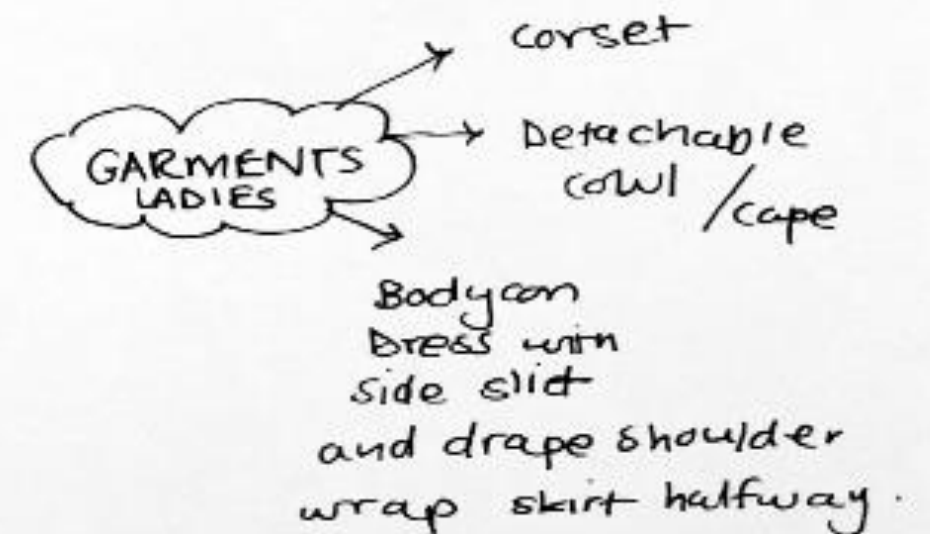 corset
GARMENTS
LADIES
Detachable
cowl /cape
Bodycon
Dress with
side slidt
and drape shoulder
wrap skirt halfway.